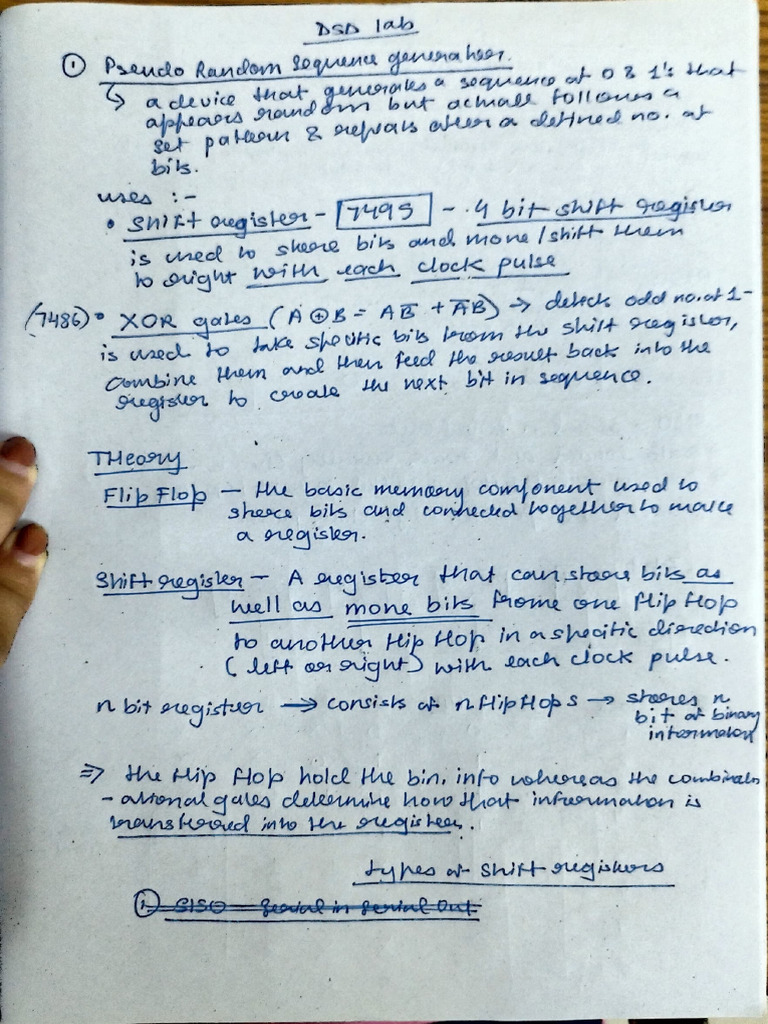 DSD lab
① Pseudo Random Sequence generator.
↳ a device that generates a sequence of 0 & 1's that
appears random but actuall follows a
set pattern & repeats after a defined no. of
bits.
uses :-
• Shift register - 7495 - 4 bit shift register
is used to store bits and move/shift them
to right with each clock pulse
(7486) • XOR gates (A ⊕ B = AB̅ + A̅B) → detects odd no. of 1-
is used to take specific bits from the shift register,
combine them and then feed the result back into the
register to create the next bit in sequence.
THeory
Flip Flop — the basic memory component used to
store bits and connected together to make
a register.
Shift register — A register that can store bits as
well as move bits frome one flip flop
to another flip flop in a specific direction
(left or right) with each clock pulse.
n bit register → consists of n flip flops → stores n
bit of binary
information
⇒ the flip flop hold the bin. info whereas the combin
-ational gates determine how that information is
transferred into the register.
types of shift registers
① SISO - Serial in Serial Out